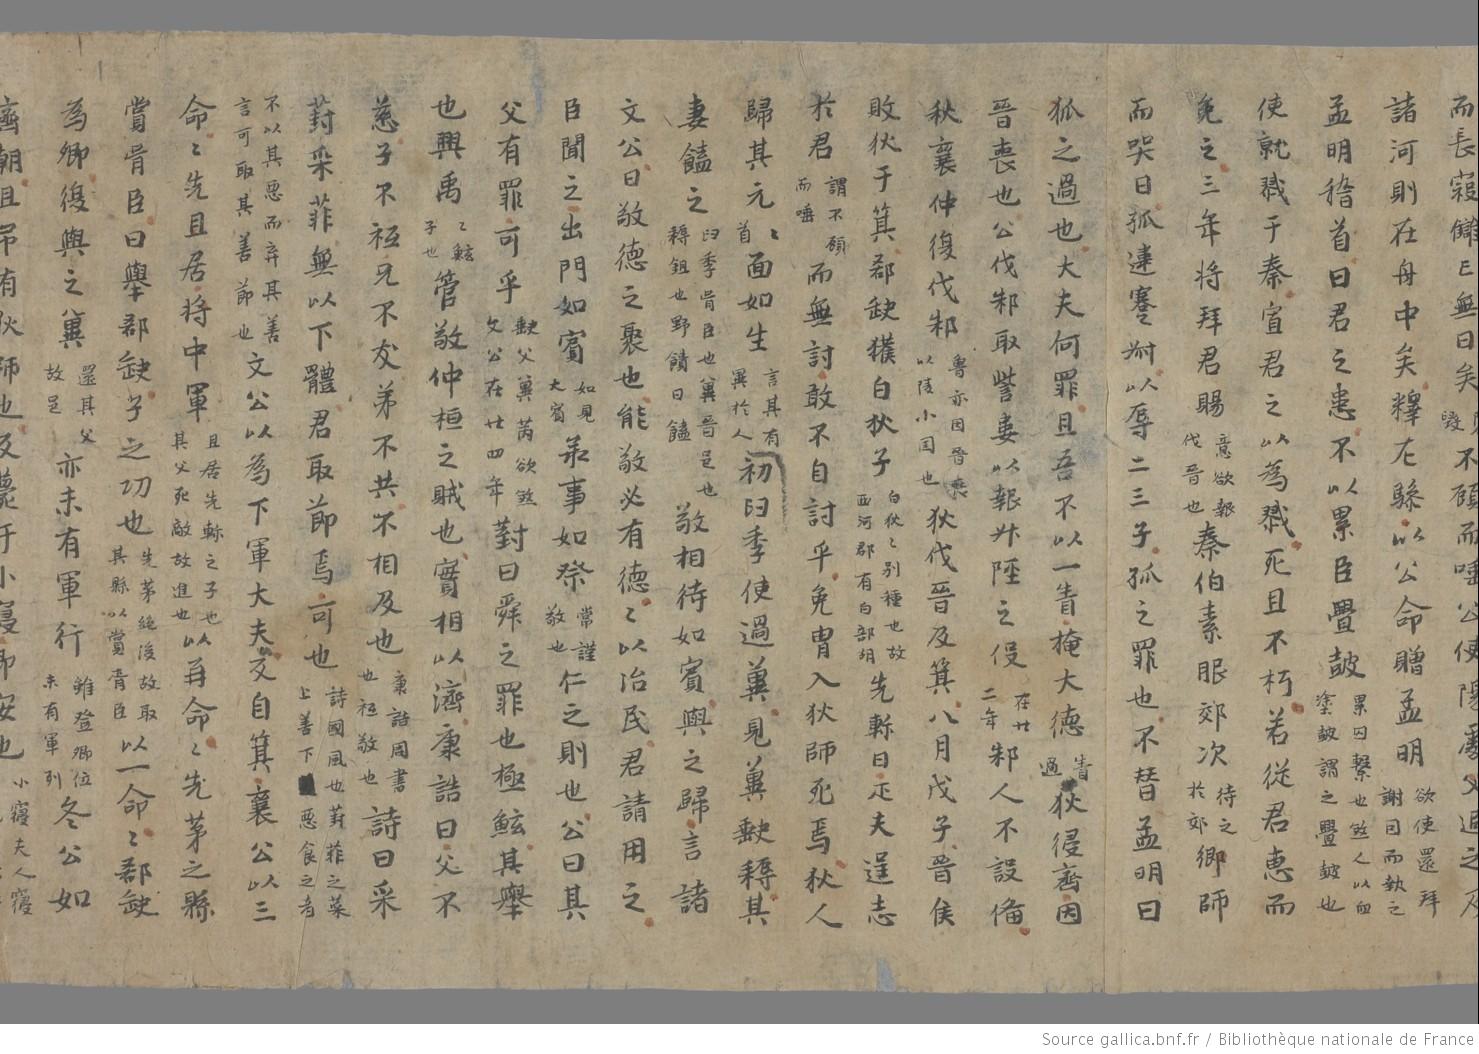 而長寇讎亡無日矣不顧而唾公使陽處父追之及
諸河則在舟中矣釋左驂以公命贈孟明欲使還拜謝因而執之
孟明稽首曰君之惠不以累臣釁鼓累囚繫也煞人以血塗鼓謂之釁鼓也
使就戮于秦寡君之以為戮死且不朽若從君惠而
免之三年将拜君賜意欲報伐晉也秦伯素服郊次待之於郊鄉師
而哭曰孤違蹇叔以辱二三子孤之罪也不替孟明曰
孤之過也大夫何罪且吾不以一眚掩大德眚過狄侵齊因
晉喪也公伐邾取訾婁以報升陘之役在廿二年邾人不設俻
秋襄仲復伐邾魯亦因晉喪以陵小国也狄伐晉及箕八月戊子晉侯
敗狄于箕郤缺獲白狄子白狄〻别種也故西河郡有白部胡先軫曰疋夫逞志
於君謂不顧而唾而無討敢不自討乎免冑入狄師死焉狄人
歸其元〻首面如生言其有異於人初臼季使過冀見冀缺耨其
妻饁之臼季胥臣也冀晉邑也耨鉏也野饋曰饁敬相待如賓與之歸言諸
文公曰敬德之聚也能敬必有德〻以治民君請用之
臣聞之出門如賓如見大賓承事如祭常謹敬也仁之則也公曰其
父有罪可乎缺父冀芮欲煞文公在廿四年對曰舜之罪也極鯀其舉
也興禹〻鯀子也管敬仲桓之賊也實相以濟康誥曰父不
慈子不祗兄不友弟不共不相及也康誥周書也祗敬也詩曰采
葑采菲無以下體君取節焉可也詩國風也葑菲之菜上善下惡食之者
不以其惡而弃其善言可取其善節也文公以為下軍大夫反自箕襄公以三
命〻先且居将中軍且居先軫之子也其父死敵故進也以再命〻先茅之縣
賞胥臣曰舉郤缺子之功也先茅絶後故取其縣以賞胥臣以一命〻郤缺
為卿復與之冀還其父故邑亦未有軍行雖登卿位未有軍列冬公如
齊朝且弔有狄師也反薨于小寝即安也小寝夫人寝